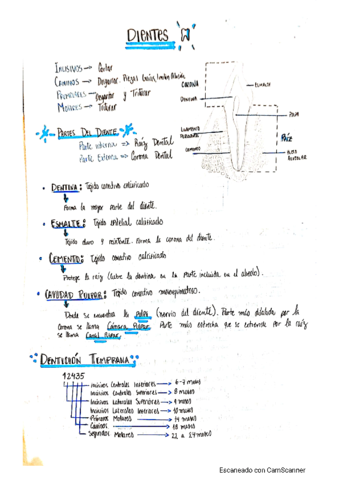 DIENTES
INCISIVOS → Cortar
CANINOS → Desgarrar.
PREMOLARES → Desgarrar y Triturar
MOLARES → Triturar
CORONA
ESMALTE
DENTINA
PULPA
RAÍZ
LIGAMENTO
CEMENTO
HUESO
ALVEOLAR
PARTES DEL DIENTE:
Parte interna => Raíz Dental
Parte Externa => Corona Dental
• DENTINA: Tejido conectivo calcificado
Forma la mayor parte del diente.
• ESMALTE: Tejido epitelial calcificado
Tejido duro y resistente. Forma la corona del diente.
• CEMENTO: Tejido conectivo calcificado
Protege la raíz (cubre la dentina en la parte incluida en el alveolo).
• CAVIDAD PULPAR: Tejido conectivo
Donde se encuentra la pulpa (nervio del diente). Parte más dilatada por la
corona se llama Cámara Pulpar. Parte más estrecha que se extiende por la raíz
se llama Canal
DENTICIÓN TEMPRANA:
12435
Incisivos Centrales Inferiores → 6-7 meses
Incisivos Centrales Superiores → 8 meses
Incisivos Laterales Superiores → 9 meses
Incisivos Laterales Inferiores → 10 meses
Primeros Molares → 14 meses
Caninos → 18 meses
Segundos Molares → 22 a 24 meses
Escaneado con CamScanner